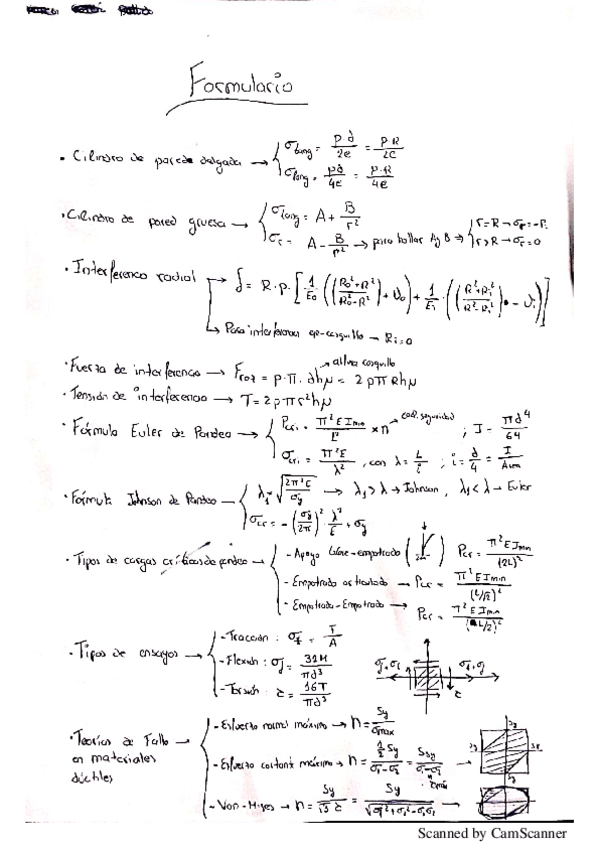 Formulario
• Cilindro de pared delgada → { σtang = P·d/2e = P·R/2e
σlong = Pd/4e = P·R/4e
• Cilindro de pared gruesa → { σtang = A + B/r²
σr = A - B/r² → para hallar A y B → { r=R → σr=-Pi
r>R → σr=0
• Interferencia radial → δ = R·P·[1/E0·((R0²+R²/R0²-R²)+υ0)+1/Ei·((R²+Ri²/R²-Ri²) - υi)]
↳ Para interferencia eje-casquillo → Ri=0
• Fuerza de interferencia → Froz = P·π·dhμ = 2pπRhμ → altura casquillo
• Tensión de interferencia → T = 2pπr²hμ
• Fórmula Euler de Pandeo → { Pcri = π²EImin/L² × n → coef. seguridad ; I = πd⁴/64
σcri = π²E/λ², con λ = L/i ; i = d/4 = I/Area
• Fórmula Johnson de Pandeo → { λ1 = √2π²E/σy → λ1>λ → Johnson, λ1<λ → Euler
σcr = -(σy/2π)²·λ²/E + σy
• Tipos de cargas críticas de pandeo → { - Apoyo libre-empotrado Pcr = π²EImin/(2L)²
- Empotrado articulado → Pcr = π²EImin/(L/√2)²
- Empotrado-Empotrado → Pcr = π²EImin/(L/2)²
• Tipos de ensayos → { - Tracción : σt = F/A
- Flexión : σf = 32M/πd³
- Torsión : τ = 16T/πd³
• Teorías de Fallo en materiales dúctiles → { - Esfuerzo normal máximo → n = Sy/σmax
- Esfuerzo cortante máximo → n = ½Sy/σ1-σ2 = Ssy/σ1-σ2
- Von-Mises → n = Sy/√3 τ = Sy/√σ1²+σ2²-σ1σ2
Scanned by CamScanner